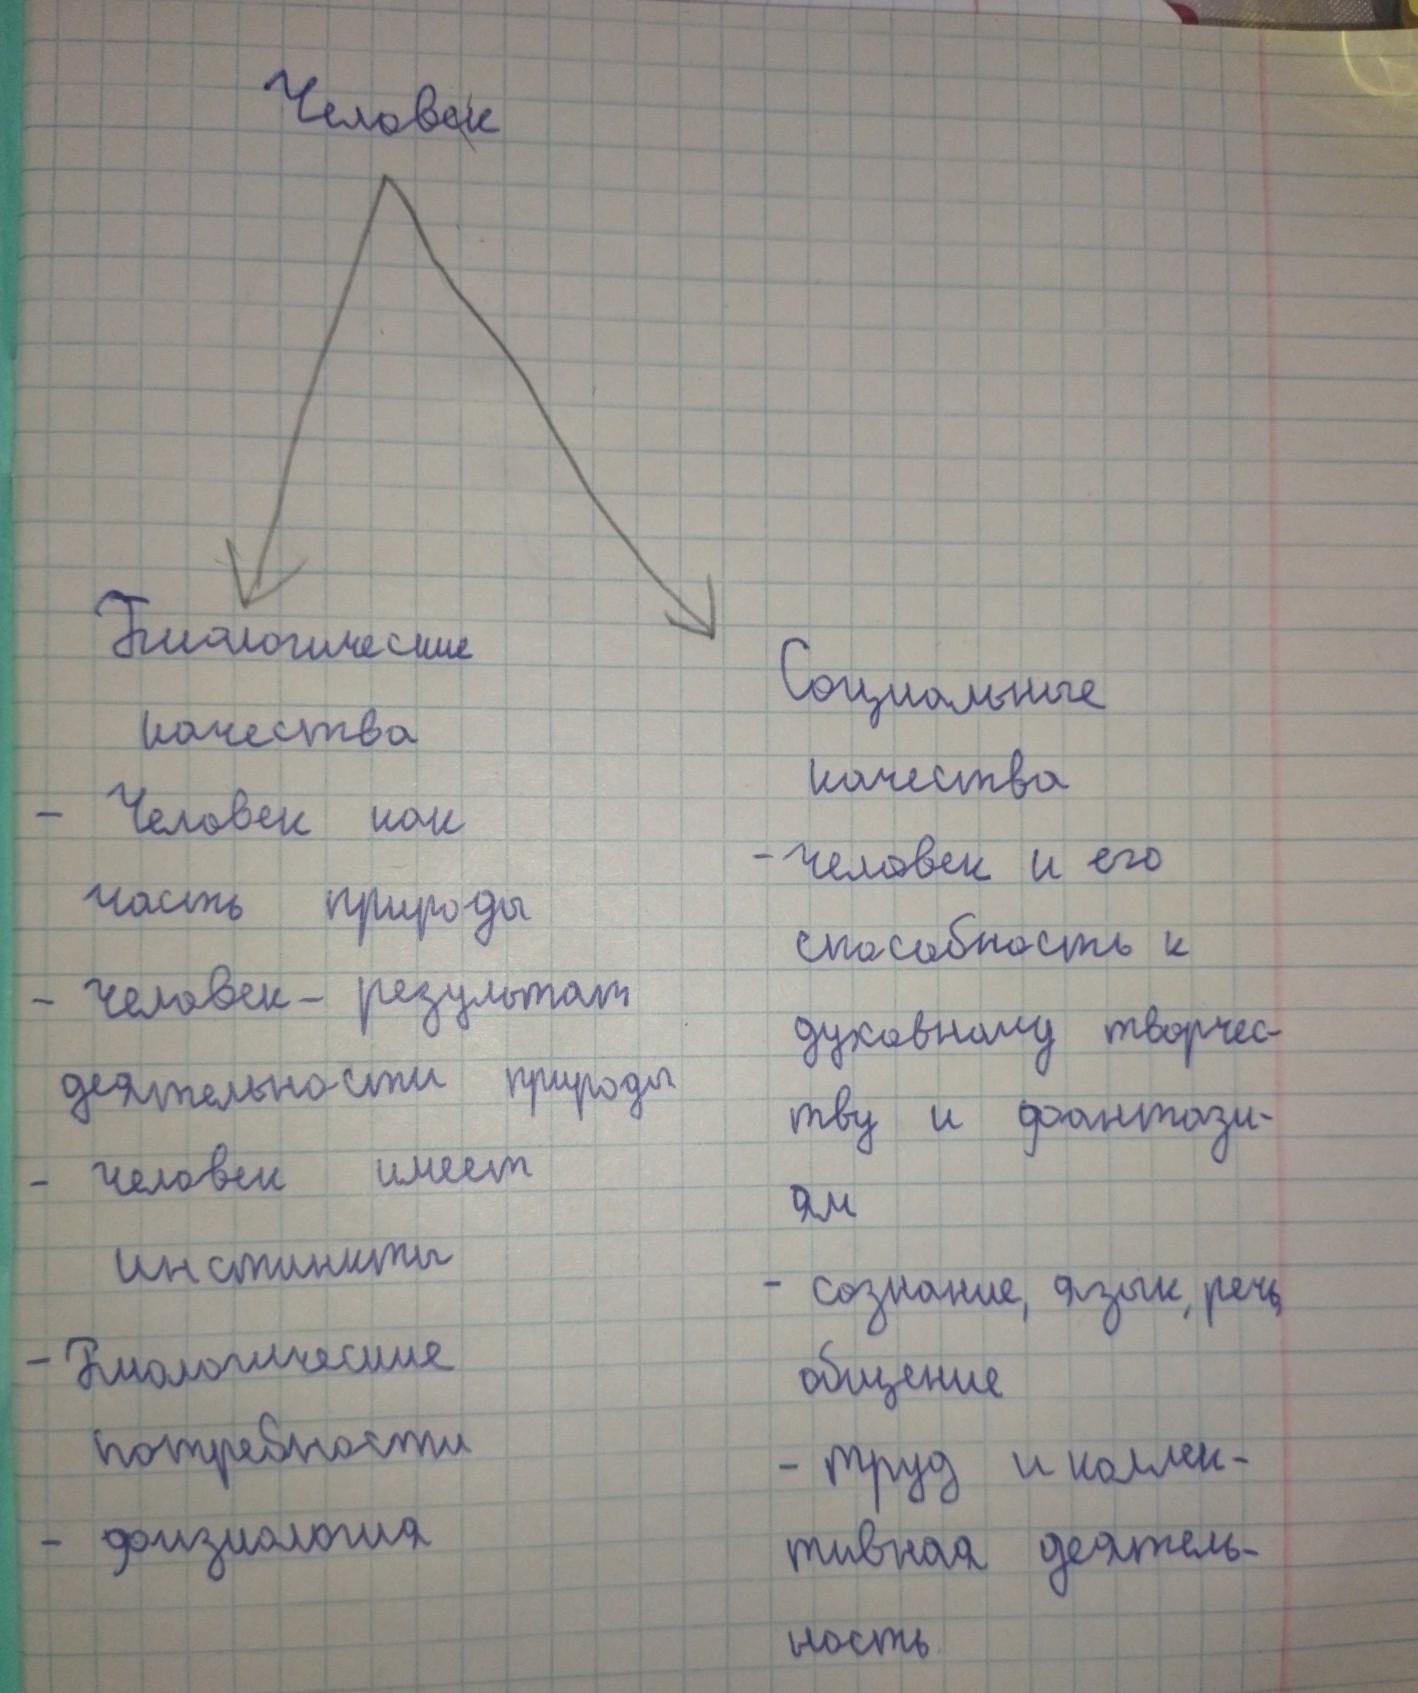 Человек
Биологические
качества
- Человек как
часть природы
- человек - результат
деятельности природы
- человек имеет
инстинкты
- Биологические
потребности
- физиология
Социальные
качества
- человек и его
способность к
духовному творчес-
тву и фантази-
ям
- сознание, язык, речь,
общение
- труд и коллек-
тивная деятель-
ность